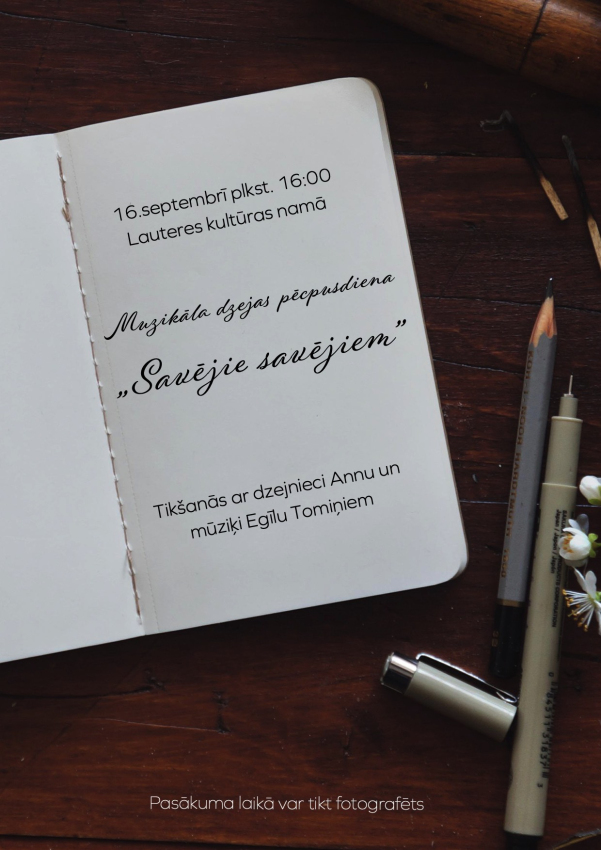 16.septembrī plkst. 16:00
Lauteres kultūras namā
Muzikāla dzejas pēcpusdiena
„Savējie savējiem”
Tikšanās ar dzejnieci Annu un
mūziķi Egīlu Tomiņiem
Pasākuma laikā var tikt fotografēts